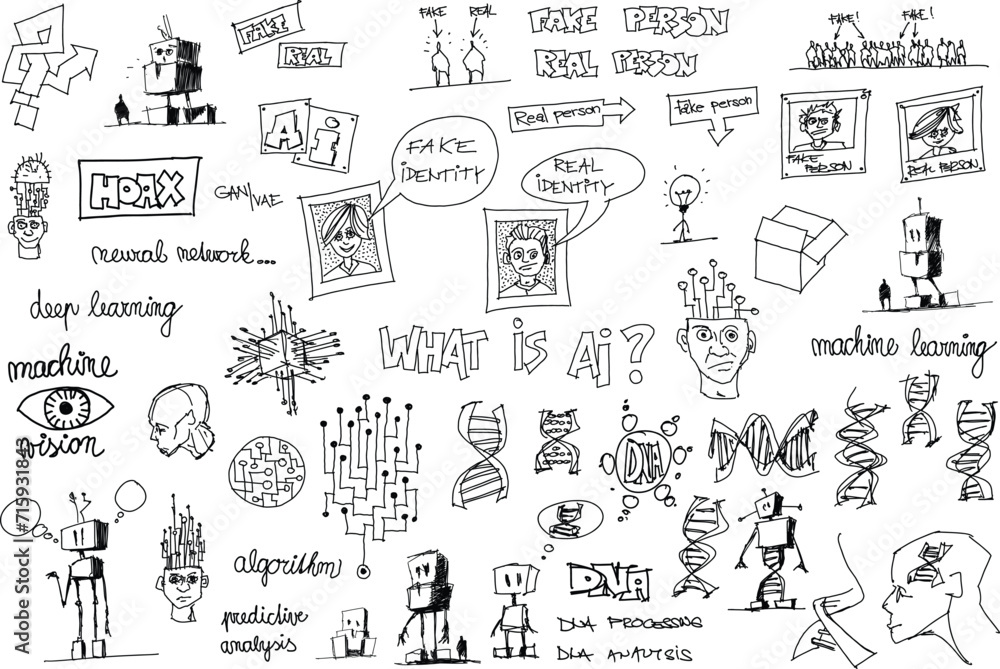 FAKE
REAL
FAKE REAL
FAKE PERSON
REAL PERSON
FAKE! FAKE!
Ai
Real person
fake person
FAKE
PERSON
REAL PERSON
FAKE
iDENTiTY
REAL
iDENTiTY
HOAX
GAN/VAE
neural network...
deep learning
machine
vision
WHAT iS Ai?
machine learning
DNA
algorithm
predictive
analysis
DNA
DNA PROCESSING
DNA ANALYSIS
Adobe Stock | #715931843
Adobe Stock